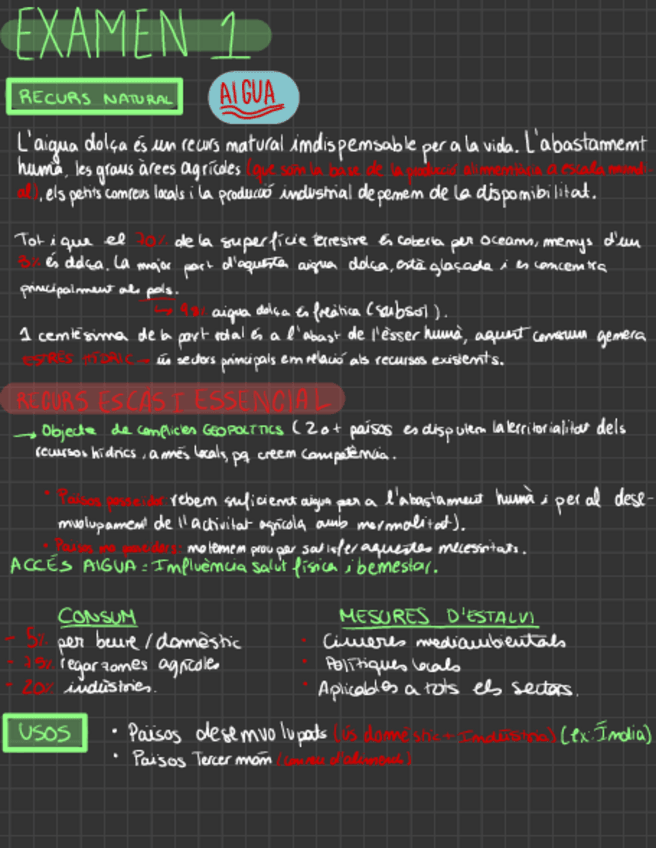 EXAMEN 1
RECURS NATURAL AIGUA
L'aigua dolça és un recurs natural indispensable per a la vida. L'abastament
humà, les grans àrees agrícoles (que són la base de la producció alimentària a escala mundi-
al), els petits comerus locals i la producció industrial depenen de la disponibilitat.
Tot i que el 70% de la superfície terrestre és coberta per oceans, menys d'un
3% és dolça. La major part d'aquesta aigua dolça, està glaçada i es concentra
principalment als pols.
↳ aigua dolça és freàtica (subsòl).
1 centèsima de la part total és a l'abast de l'ésser humà, aquest consum genera
ESTRÈS HÍDRIC → ús sectors principals en relació als recursos existents.
RECURS ESCÀS I ESSENCIAL
→ Objecte de conflictes GEOPOLÍTICS (2 o + països es disputen la territorialitat dels
recursos hídrics, a més locals, pq creen competència.
• Països posseïdor: reben suficient aigua per a l'abastament humà i per al dese-
nvolupament de l'activitat agrícola amb normalitat).
• Països no posseïdors: no tenen prou per satisfer aquestes necessitats.
ACCÉS AIGUA = Influència salut física i benestar.
CONSUM MESURES D'ESTALVI
- 5% per beure / domèstic • Cimeres mediambientals
- 75% regar zones agrícoles • Polítiques locals
- 20% indústries. • Aplicables a tots els sectors.
USOS • Països desenvolupats (ús domèstic + Indústria) (ex: Índia)
• Països Tercer món